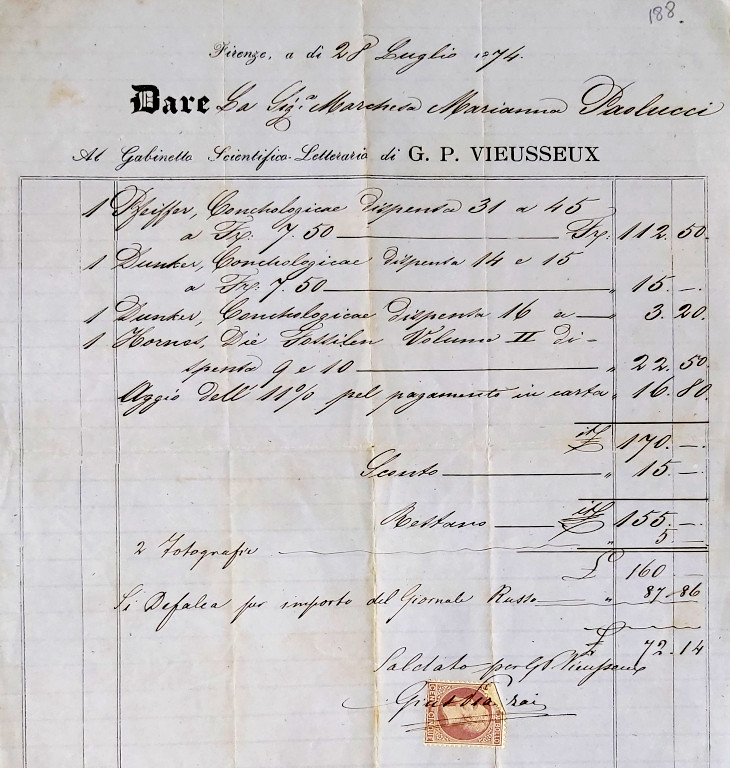 188.
Firenze, a di 28 Luglio 1874.
Dare La Sigra Marchesa Marianna Paolucci
Al Gabinetto Scientifico-Letterario di G. P. VIEUSSEUX
1 Pfeiffer, Conchologicae dispensa 31 a 45
a Fr. 7.50 — Fr. 112.50.
1 Dunker, Conchologicae dispensa 14 e 15
a Fr. 7.50 — " 15.—.
1 Dunker, Conchologicae dispensa 16 a — " 3.20.
1 Hornes, Die Fossilen Volume II di-
spensa 9 e 10 — " 22.50.
Aggio dell' 11% pel pagamento in carta " 16.80.
it£ 170.—.
Sconto — " 15.—.
Restano — it£ 155.—.
2 Fotografie " 5.—
£ 160 —
Si Defalca per importo del Giornale Russo — " 87.86
£ 72.14
Saldato per GP Vieusseux